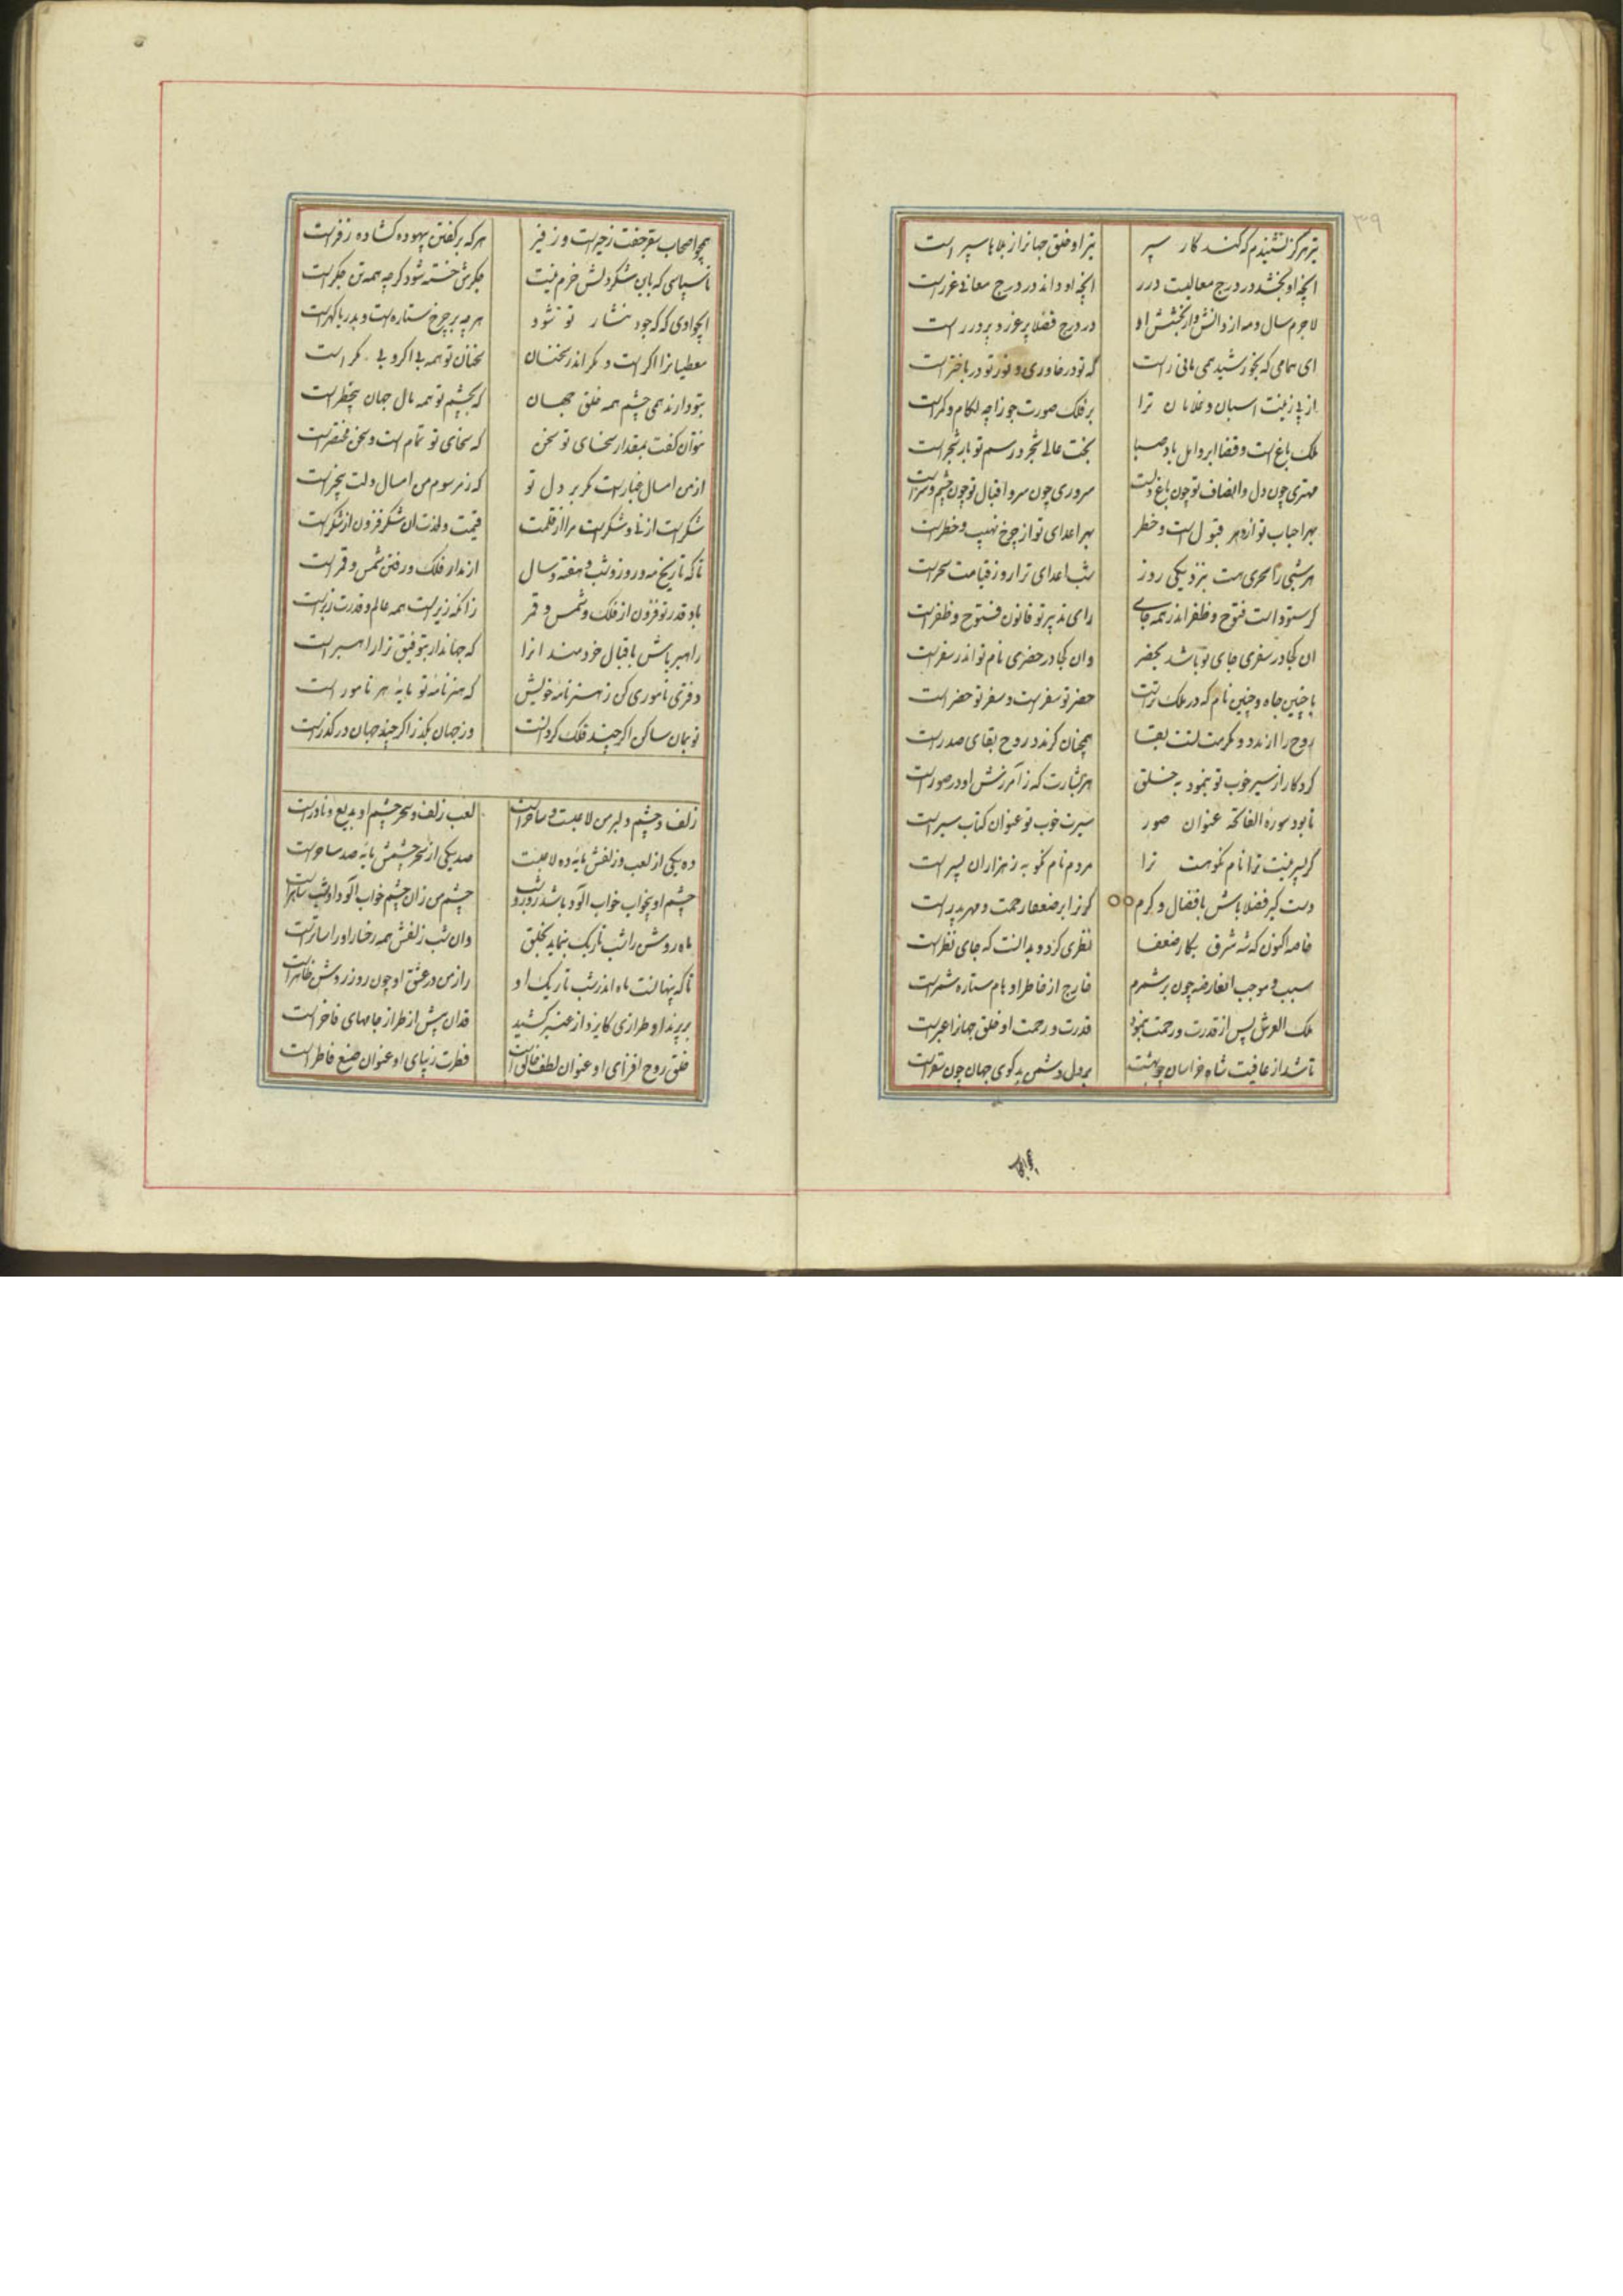 ۳۹
تیر هرگز نشنیدم که کند کار سپر تیر او خلق جهانرا ز بلاها سپر است
انچه او بخشد در درج معالیت درر انچه او داند در درج معانی غرر است
لاجرم سال و مه از دانش و از بخشش او درج فضلا پر غرر و پر درر است
ای همامی که بخورشید همی مانی راست که تو در خاوری و نور تو در باختر است
از پی زینت اسبان و غلامان ترا بر فلک صورت جوزا چه لکام و کمر است
ملک باغ است و قضا ابر و امل باد صبا بخت عالی شجر و رسم تو بار شجر است
مهتری چون دل و انصاف تو چون سروری چون سر و اقبال تو چون چشم و سر است
بهر احباب تو از دهر قبول است و خطر بهر اعدای تو از چرخ نهیب و خطر است
هر شبی را سحری هست بنزدیکی روز شب اعدای ترا روز قیامت سحر است
کر ستوده است فتوح و ظفر اندر همه جای رای و تدبیر تو قانون فتوح و ظفر است
ان کجا در سفری جای تو باشد بحضر وان کجا در حضری نام تو اندر سفر است
با چنین جاه و چنین نام که در ملک تراست حضر تو سفر است و سفر تو حضر است
روح را از مدد مکرمت تست بقا همچنان کز مدد روح بقای صور است
کردکار از سیر خوب تو بنمود به خلق هر بشارت که ز آمرزش او در صور است
تا بود سورة الفاتحه عنوان صور سیرت خوب تو عنوان کتاب سیر است
کر پسر نیست ترا نام نکو هست ترا مردم نام نکو به ز هزاران پسر است
دست کیر فضلا باش بافضال و کرم که ترا بر ضعفا رحمت و مهر پدر است
خاصه اکنون که شه شرق بکار ضعفا نظری کرد و بدانست که جای نظر است
سبب و موجب انعارضه چون برشمرم خارج از خاطر اوهام ستاره شمر است
ملک العرش پس از قدرت و رحمت بنمود قدرت و رحمت او خلق جهانرا عبر است
تا شد از عافیت شاه خراسان چو بهشت بر دل دشمن بدکوی جهان چون سقر است
همچو
همچو اصحاب سقر جفت زحیر است و زفیر هر که بر کفتن بیهوده کشاده زفر است
ناسپاسی که باین شکر دلش خرم نیست جکرش خسته شود کرچه همه تن جکر است
ای جوادی که که جود نثار تو شود هرچه بر چرخ ستاره است و بدریا کهر است
معطیانرا اکر است و مکر اندر سخنان سخنان تو همه بی اکر و بی مکر است
بتو دارند همی چشم همه خلق جهان که بچشم تو همه مال جهان بیخطر است
نتوان کفت بمقدار سخای تو سخن که سخای تو تمام است و سخن مختصر است
از من امسال غبار است مکر بر دل تو که ز مرسوم من امسال دلت بیخبر است
شکر است از نی و شکر است مرا از قلمت قیمت و لذت ان شکر فزون از شکر است
تا که تاریخ مه و روز و شب و هفته و سال از مدار فلک و رفتن شمس و قمر است
باد قدر تو فزون از فلک و شمس و قمر زانکه زیر است همه عالم و قدرت زبر است
راهبر باش باقبال خردمندانرا که جهاندار بتوفیق ترا راهبر است
دفتری ناموری کن ز هنرنامه خویش که هنرنامه تو مایه هر نامور است
تو بمان ساکن اکر چند فلک کردانست وز جهان بکذر اکر چند جهان در کذر است
زلف و چشم دلبر من لاعبست و ساحر است لعب زلف و سحر چشم او بدیع و نادر است
ده یکی از لعب زلفش مایه ده لاعبست صد یکی از سحر چشمش مایه صد ساحر است
چشم او بیخواب خواب الود باشد روز و شب چشم من زان چشم خواب الود او شب ساهر است
ماه رویش را شب تاریک بنماید بخلق وان شب زلفش همه رخسار او را ساتر است
تا که پنهانست ماه اندر شب تاریک او راز من در عشق او چون روز روشن ظاهر است
بر پرند او طرازی کایزد از عنبر کشید قدان پیش از طراز جامهای فاخر است
خلق روح افزای او عنوان لطف خالق است فطرت زیبای او عنوان صنع فاطر است